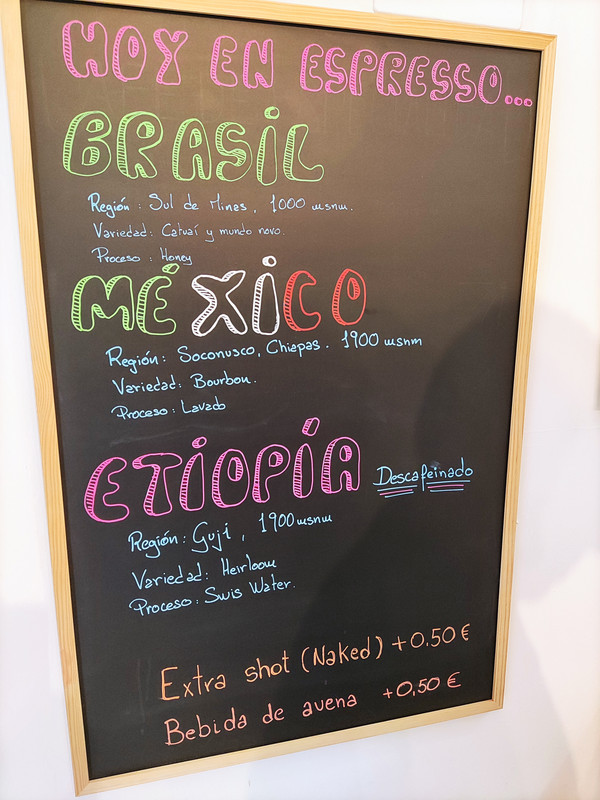 HOY EN ESPRESSO...
BRASIL
Región: Sul de Minas, 1000 msnm.
Variedad: Catuaí y mundo novo.
Proceso: Honey
MÉXICO
Región: Soconusco, Chiapas. 1900 msnm
Variedad: Bourbon.
Proceso: Lavado
ETIOPÍA Descafeinado
Región: Guji, 1900 msnm
Variedad: Heirloom
Proceso: Swis Water.
Extra shot (Naked) +0.50 €
Bebida de avena +0,50 €